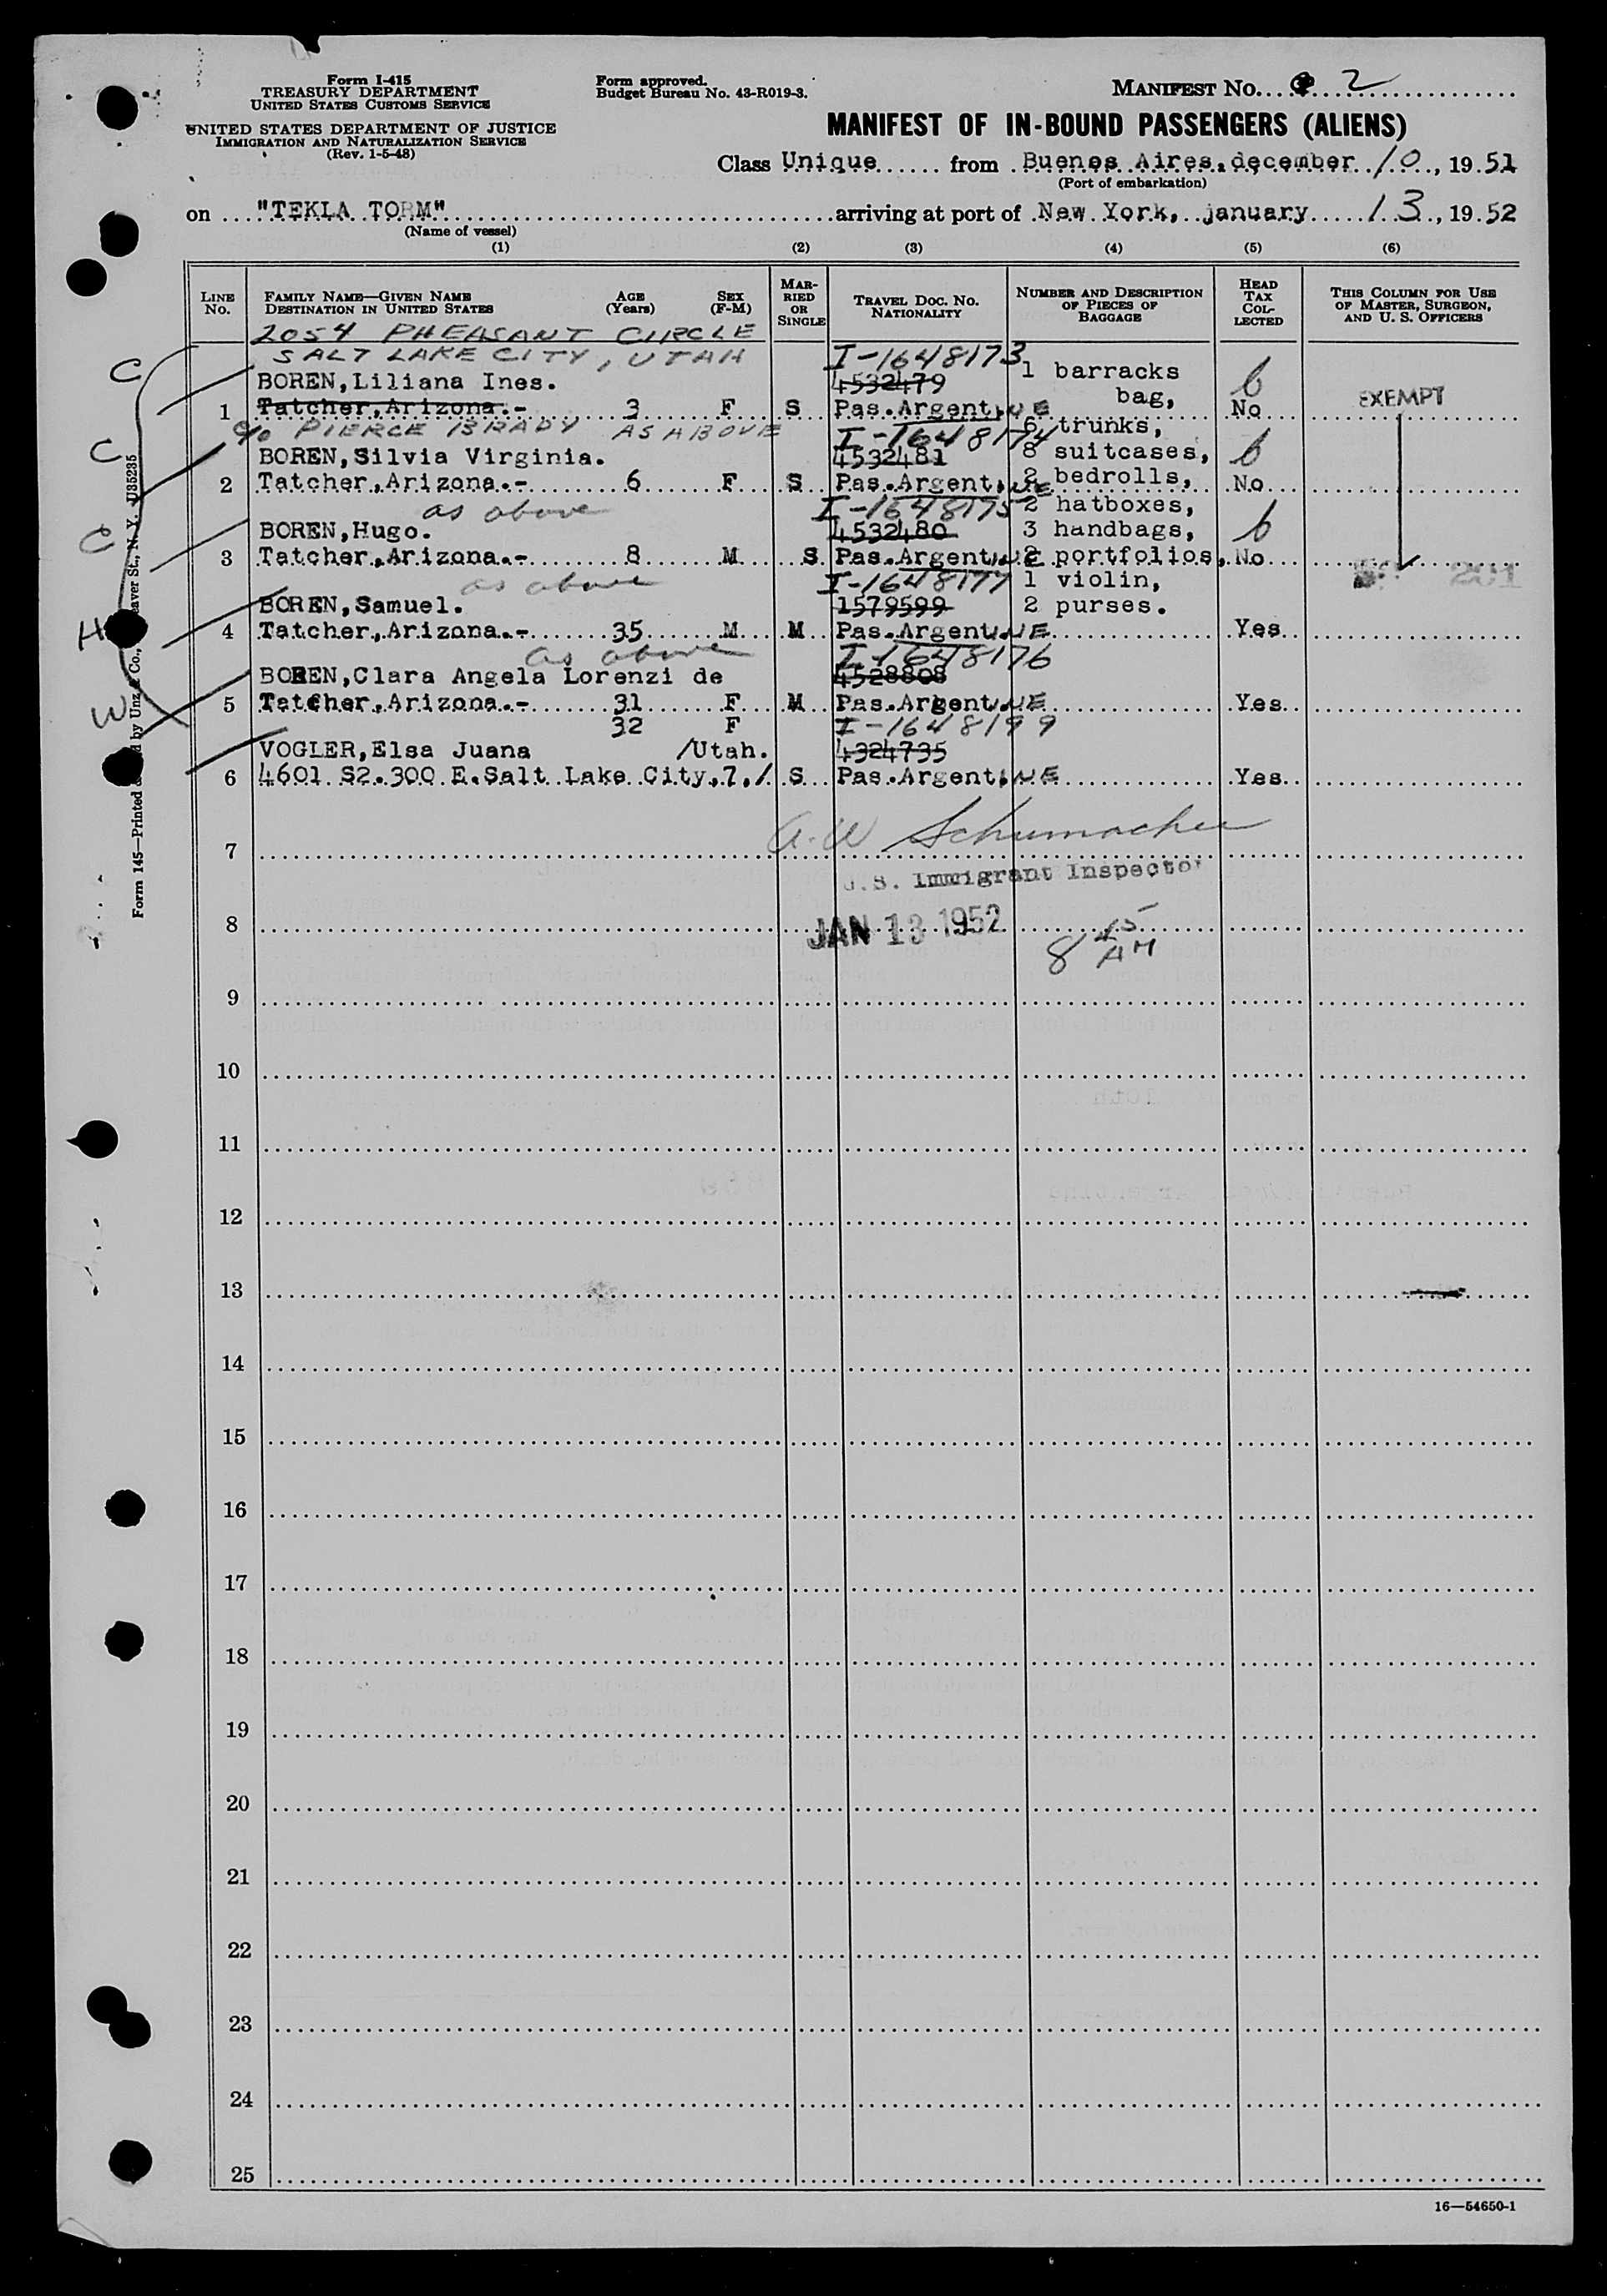 Form I-415
TREASURY DEPARTMENT
UNITED STATES CUSTOMS SERVICE
UNITED STATES DEPARTMENT OF JUSTICE
IMMIGRATION AND NATURALIZATION SERVICE
(Rev. 1-5-48)
Form approved.
Budget Bureau No. 43-R019-3.
MANIFEST NO. 2
MANIFEST OF IN-BOUND PASSENGERS (ALIENS)
Class Unique from Buenos Aires, december 10, 1951
(Port of embarkation)
on "TEKLA TORM" arriving at port of New York, january 13, 1952
(Name of vessel)
(1) (2) (3) (4) (5) (6)
LINE NO.
FAMILY NAME—GIVEN NAME
DESTINATION IN UNITED STATES
AGE (Years)
SEX (F-M)
MARRIED OR SINGLE
TRAVEL DOC. NO.
NATIONALITY
NUMBER AND DESCRIPTION OF PIECES OF BAGGAGE
HEAD TAX COLLECTED
THIS COLUMN FOR USE OF MASTER, SURGEON, AND U. S. OFFICERS
2054 PHEASANT CIRCLE
SALT LAKE CITY, UTAH I-1648173
C BOREN, Liliana Ines. 4532479 1 barracks
1 Tatcher, Arizona.- 3 F S Pas. Argent.NE bag, No EXEMPT
c/o PIERCE BRADY AS ABOVE I-1648174 6 trunks,
C BOREN, Silvia Virginia. 4532481 8 suitcases,
2 Tatcher, Arizona.- 6 F S Pas. Argent.NE 2 bedrolls, No
as above I-1648175 2 hatboxes,
C BOREN, Hugo. 4532480 3 handbags,
3 Tatcher, Arizona.- 8 M S Pas. Argent.NE 2 portfolios, No
as above I-1648177 1 violin, 201
BOREN, Samuel. 1579599 2 purses.
H 4 Tatcher, Arizona.- 35 M M Pas. Argent.NE Yes
as above I-1648176
BOREN, Clara Angela Lorenzi de 4528808
W 5 Tatcher, Arizona.- 31 F M Pas. Argent.NE Yes
32 F I-1648199
VOGLER, Elsa Juana /Utah. 4324735
6 4601 S2. 300 E. Salt Lake City, 7, / S Pas. Argent.NE Yes
A. W Schumacher
7
U.S. Immigrant Inspector
8 JAN 13 1952 8 45 AM
9
10
11
12
13
14
15
16
17
18
19
20
21
22
23
24
25
16—54650-1